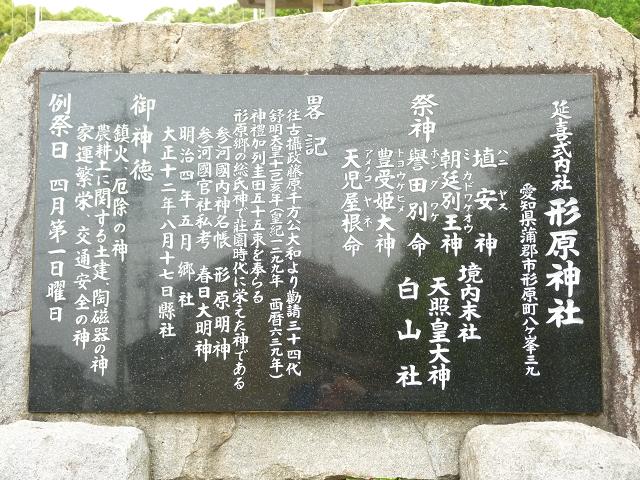 延喜式内社 形原神社
愛知県蒲郡市形原町八ケ峯三九
祭神
埴安神
ハニ ヤス
朝廷別王神
ミカドワケオウ
誉田別命
ホンダワケ
豊受姫大神
トヨウケヒメ
天児屋根命
アメノコヤネ
境内末社
天照皇大神
白山社
畧記
往古攝政藤原千方公大和より勸請三十四代
舒明天皇十一己亥年(皇紀一二九九年 西暦六三九年)
神禮加列圭田五十五束を奉らる
形原郷の総氏神で荘園時代に栄えた神である
参河國内神名帳 形原明神
参河國官社私考 春日大明神
明治四年五月 郷社
大正十二年八月十七日縣社
御神徳
鎮火、厄除の神
農耕土に関する土建、陶磁器の神
家運繁栄、交通安全の神
例祭日 四月第一日曜日